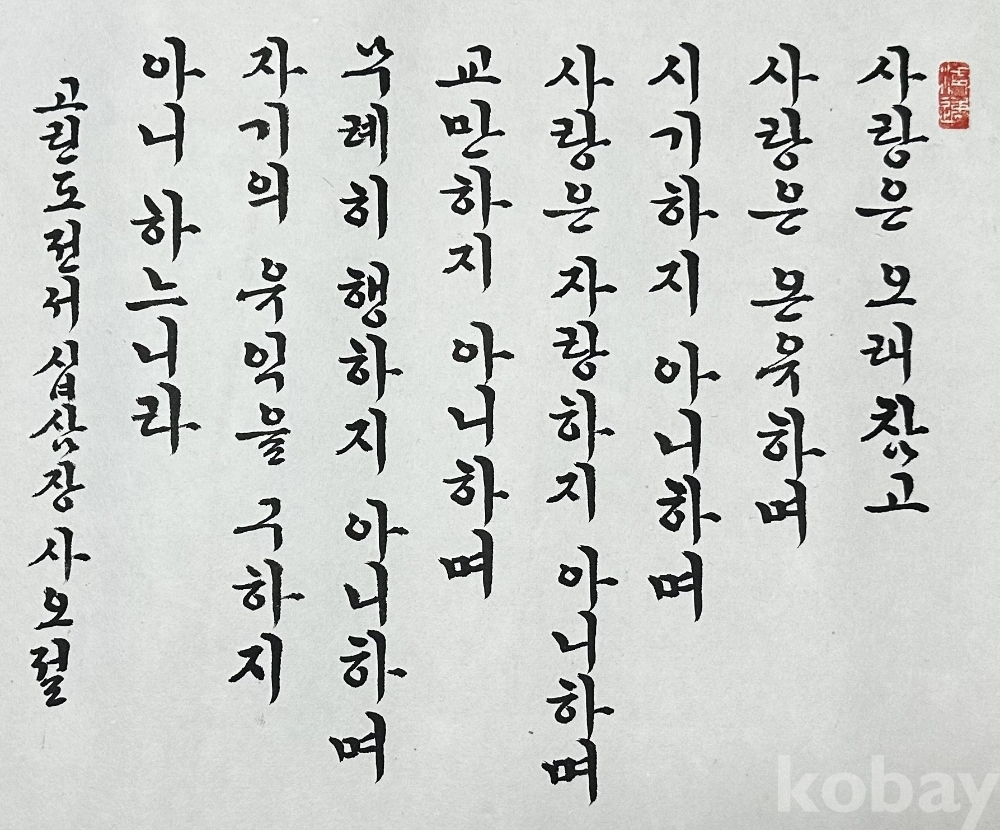 사랑은 오래 참고
사랑은 온유하며
시기하지 아니하며
사랑은 자랑하지 아니하며
교만하지 아니하며
무례히 행하지 아니하며
자기의 유익을 구하지
아니 하느니라
고린도전서 십삼장 사오절
kobay